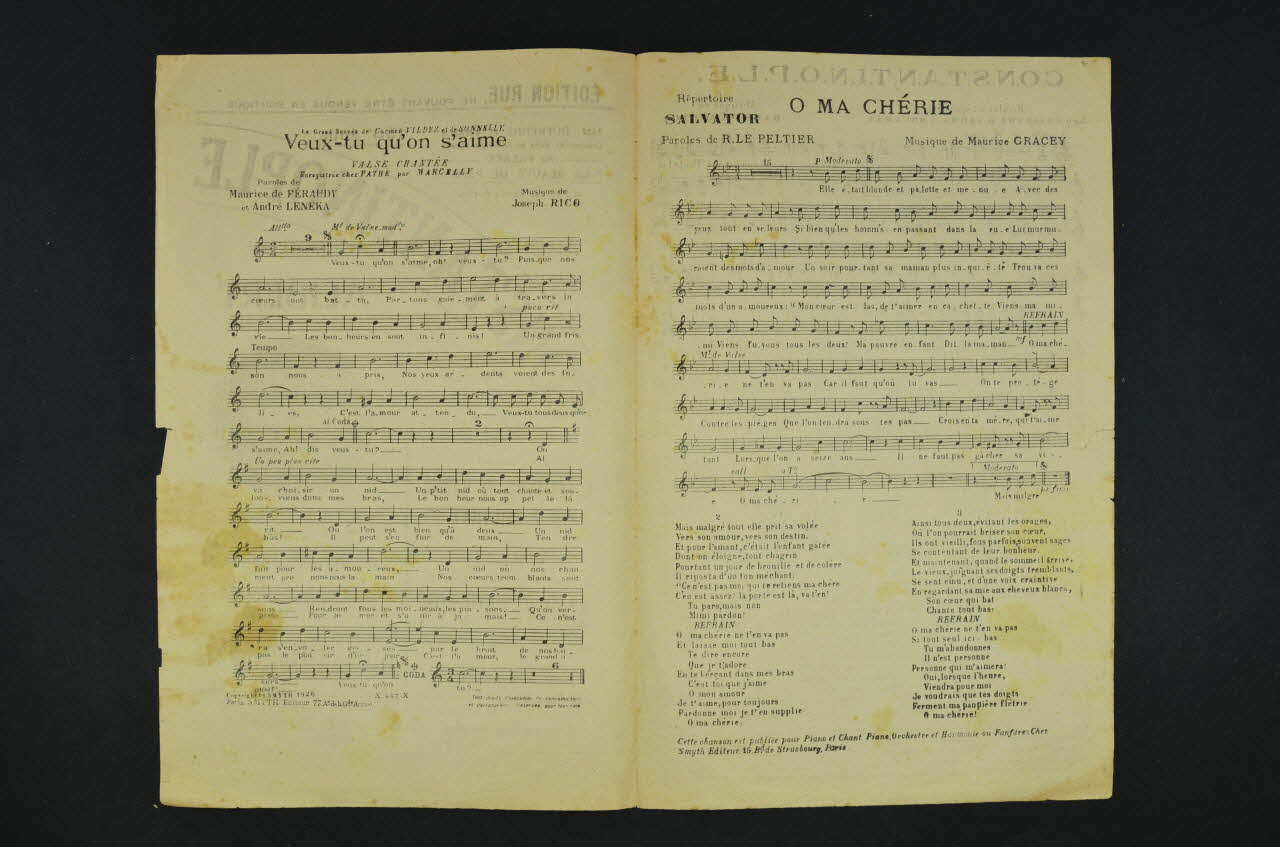 Le Grand Succès de Carmen VILDEZ et de SONNELLY
Veux-tu qu'on s'aime
VALSE CHANTÉE
Enregistrée chez PATHÉ par MARCELLY
Paroles de
Maurice de FÉRAUDY
et André LENEKA
Musique de
Joseph RICO
All.tto 9 Mt de Valse mod.to
Veux-tu qu'on s'aime, oh! veux-tu? Puis-que nos
cœurs ont bat-tu, Par-tons gaie-ment à tra-vers la
poco rit
vie Les bon-heurs en sont in-fi-nis! Un grand fris
Tempo
son nous a pris, Nos yeux ar-dents voient des fo-
li-es, C'est l'a-mour at-ten-du, Veux-tu tous deux qu'on
al Coda 2
s'aime, Ah! dis veux-tu? On
Un peu plus vite Al
va choi-sir un nid Un p'tit nid où tout chante et sou-
lon-viens dans mes bras, Le bon heur nous ap pel le là
rit Où l'on est bien qu'à deux Un nid
bas! Il peut s'en fuir de main, Ten dre
fait pour les a-mou-reux, Un nid où nos chan
ment pre nons nous la main Nos cœurs trem blants sont
sons Ren-dront fous les moi-neaux, les pin-sons. Qu'on ver-
prets Pour ai mer et s'u nir à ja mais! Ce n'est
ra s'en-vo-ler gri-ses par le bruit de nos bai
pas le plai sir d'un jour C'est l'a mour, le grand a
sers Veux-tu qu'on CODA 6
mour! tu?
Copyright by SMYTH 1926 X. 447 X
Paris SMYTH Editeur
ÉDITION RUE, NE POUVANT ÊTRE VENDUE EN BOUTIQUE
CONSTANTINOPLE
Répertoire
SALVATOR
O MA CHÉRIE
Paroles de R. LE PELTIER
Musique de Maurice GRACEY
15 p Moderato
Elle e-tait blonde et pâ-lotte et me-nu-e A-vec des
yeux tout en ve-leurs Si bien qu'les homm's en passant dans la ru-e Lui murmu-
raient des mots d'a-mour Un soir pour-tant sa maman plus in-qui-è-té Trou-va ces
mots d'un a-moureux: "Mon cœur est las, de t'aimer en ca-chet-te Viens ma mi-
REFRAIN
mi Viens fu-yons tous les deux! Ma pauvre en-fant Dit la ma-man mf O ma ché-
Mt de Valse
ri-e ne t'en va pas Car il faut qu'où tu vas On te pro-tè-ge
Contre les piè-ges Que l'on ten-dra sous tes pas Crois en ta mè-re, qui t'ai-me
tant Lors-que l'on a seize ans Il ne faut pas gâ-cher sa vi-
rall a To 1o Moderato
e O ma ché-ri-e Mais malgré
2
Mais malgré tout elle prit sa volée
Vers son amour, vers son destin.
Et pour l'amant, c'était l'enfant gatée
Dont on éloigne, tout chagrin
Pourtant un jour de brouille et de colère
Il riposta d'un ton méchant.
"C'en est pas moi qui te retiens ma chère
C'en est assez! la porte est là, va t'en!
Tu pars, mais non
Mimi pardon!
REFRAIN
O ma chérie ne t'en va pas
Et laisse moi tout bas
Te dire encore
Que je t'adore
En te berçant dans mes bras
C'est toi que j'aime
O mon amour
Je t'aime, pour toujours
Pardonne moi je t'en supplie
O ma chérie.
3
Ainsi tous deux, évitant les orages,
Où l'on pourrait briser son cœur,
Ils ont vieilli, fous parfois, souvent sages
Se contentant de leur bonheur.
Et maintenant, quand le sommeil arrive,
Le vieux, joignant ses doigts tremblants,
Se sent ému, et d'une voix craintive
En regardant sa mie aux cheveux blancs,
Son cœur qui bat
Chante tout bas:
REFRAIN
O ma chérie ne t'en va pas
Si tout seul ici bas
Tu m'abandonnes
Il n'est personne
Personne qui m'aimera
Oui, lorsque l'heure,
Viendra pour moi
Je voudrais que tes doigts
Ferment ma paupière flétrie
O ma chérie!
Cette chanson est publiée pour Piano et Chant Piano, Orchestre et Harmonie ou Fanfare: Chez
Smyth Editeur 15 Bd de Strasbourg, Paris